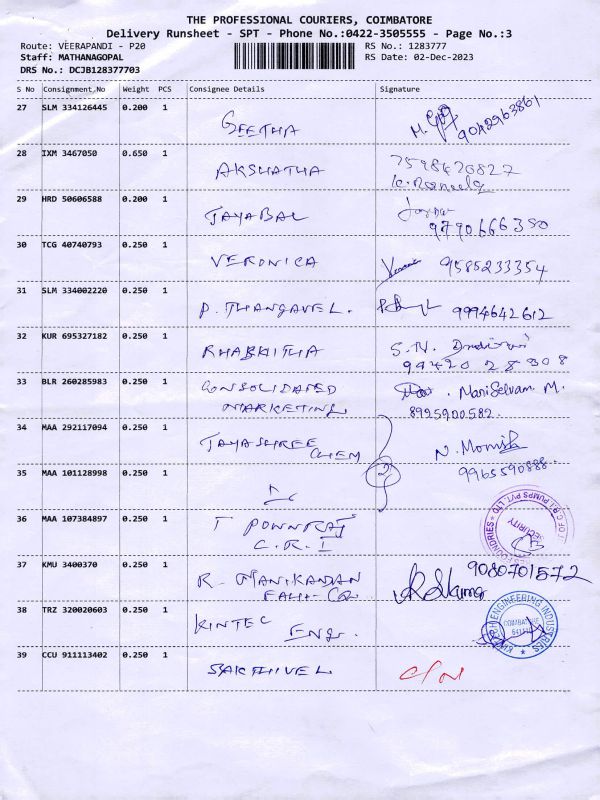 THE PROFESSIONAL COURIERS, COIMBATORE
Delivery Runsheet - SPT - Phone No.:0422-3505555 - Page No.:3
Route: VEERAPANDI - P20 RS No.: 1283777
Staff: MATHANAGOPAL RS Date: 02-Dec-2023
DRS No.: DCJB128377703
S No Consignment.No Weight PCS Consignee Details Signature
27 SLM 334126445 0.200 1 GEETHA 9042963861
28 IXM 3467050 0.650 1 AKSHATHA 7598470827
29 HRD 50606588 0.200 1 JAYABAL
9790666350
30 TCG 40740793 0.250 1 VERONICA 9585233354
31 SLM 334002220 0.250 1 P. THANGAVEL. 9994642612
32 KUR 695327182 0.250 1 S.N.
94420 28808
33 BLR 260285983 0.250 1 CONSOLIDATED ManiSelvam. M.
MARKETING 8925900582.
34 MAA 292117094 0.250 1 JAYASHREE CHEM N. Monisha
9965590888
35 MAA 101128998 0.250 1 2
36 MAA 107384897 0.250 1 T PONNRAJ
C.R.I SECURITY
37 KMU 3400370 0.250 1 R. MANIKANDAN 9080701572
38 TRZ 320020603 0.250 1 KINTEC ENG. ENGINEERING INDUSTRIES
39 CCU 911113402 0.250 1 SAKTHIVEL